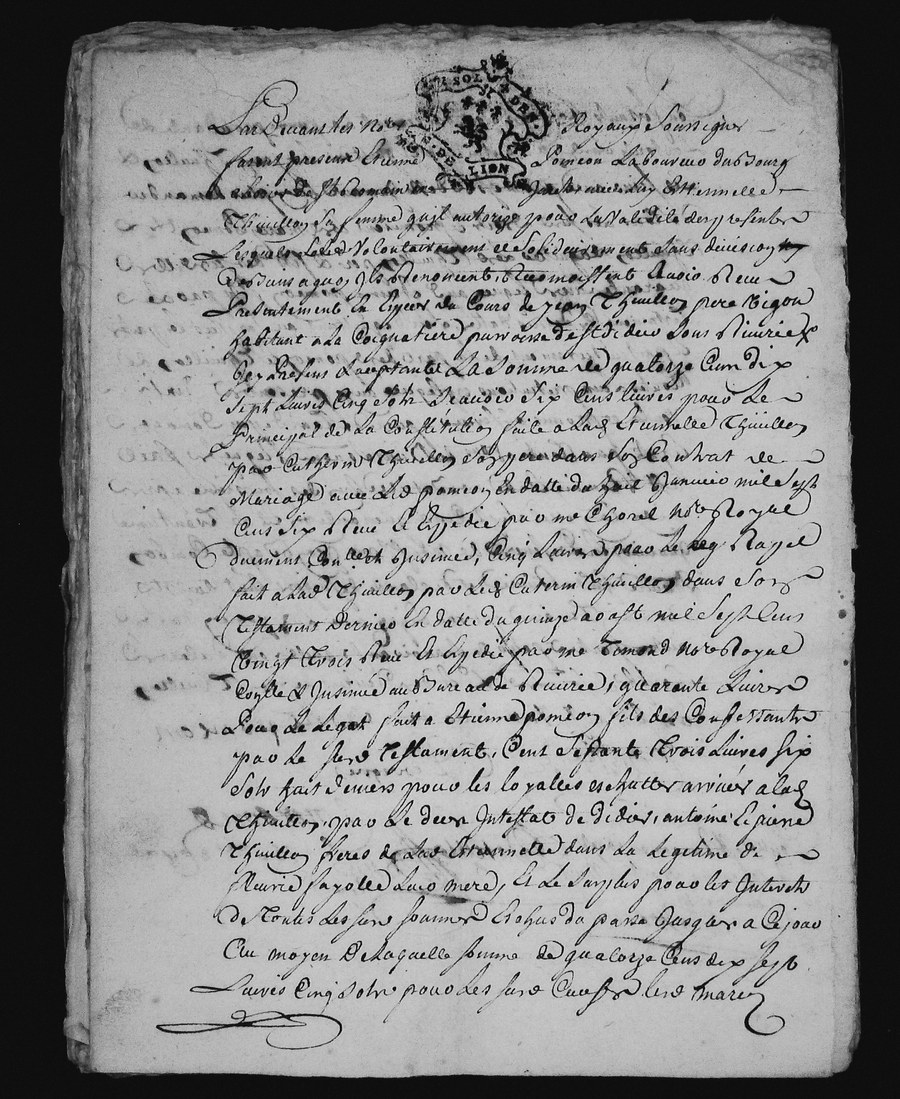 SOL DEN
GEN. DE LION
Pardevant les No.res Royaux Soussignes
furent presens Etienne Pomeon Laboureur du Bourg
Etiennelle
Thuillon Sa femme qu'il autorise pour La Validité des presentes
Lesquels de leur Volontairement et Solidairement Sans division ny
Discution a quoy Ils Renoncent, Reconnoissent Avoir Receu
Presentement En Especes du Cours de Jean Thuillon pere Vigon
habitant a La Coignatiere parroisse de St Didier Sous Riverie
Icy Present Lacceptante La Somme de quatorze Cent Dix
Sept Livres Cinq Sols Scavoir Six Cens livres pour Le
Principal de La Constitution faite a Lad Etiennelle Thuillon
par Catherin Thuillon Son pere dans Son Contrat de
Mariage avec Led pomeon En datte du huit Janvier mil Sept
Cens Six Receu Et Expedié par me Chorel No.re Royal
Duement Con.llé et Insinué, Cinq Livres par Le Leg Rayel
fait a Lad Thuillon par Led Caterin Thuillon dans Son
Testament Dernier En datte du quinze aoast mil Sept Cens
Vingt Trois Receu Et Expedié par me Tomond No.re Royal
Con.llé & Insinué au Bureau de Riverie, quarante Livres
Pour Le Legat fait a Etienne pomeon fils des Confessants
par Le Susd Testament, Cent Septante Trois Livres Six
Sols huit deniers pour les loyalles eschuttes arrivées a lad
Thuillon, par Le deces Intestat de Didier, antoine Et pierre
Thuillon freres de Lad Etiennelle dans La Legitime de
fleurie fayolle Leur mere, Et Le Surplus pour les Interets
De Toutes Les Susd Sommes Echus du passé Jusques a Ce jour
Au moyen De Laquelle Somme de quatorze Cens dix Sept
Livres Cinq Sols pour Les Susd Causes lesd mariez